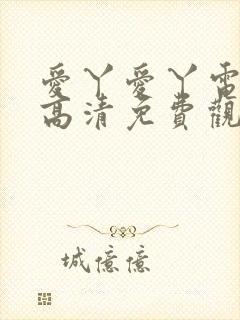 愛丫愛丫電
高清免費觀
城億億